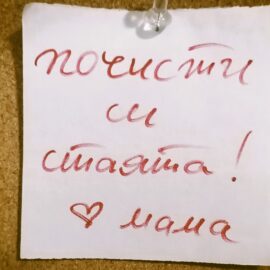 почисти
си
стаята!
♡ мама